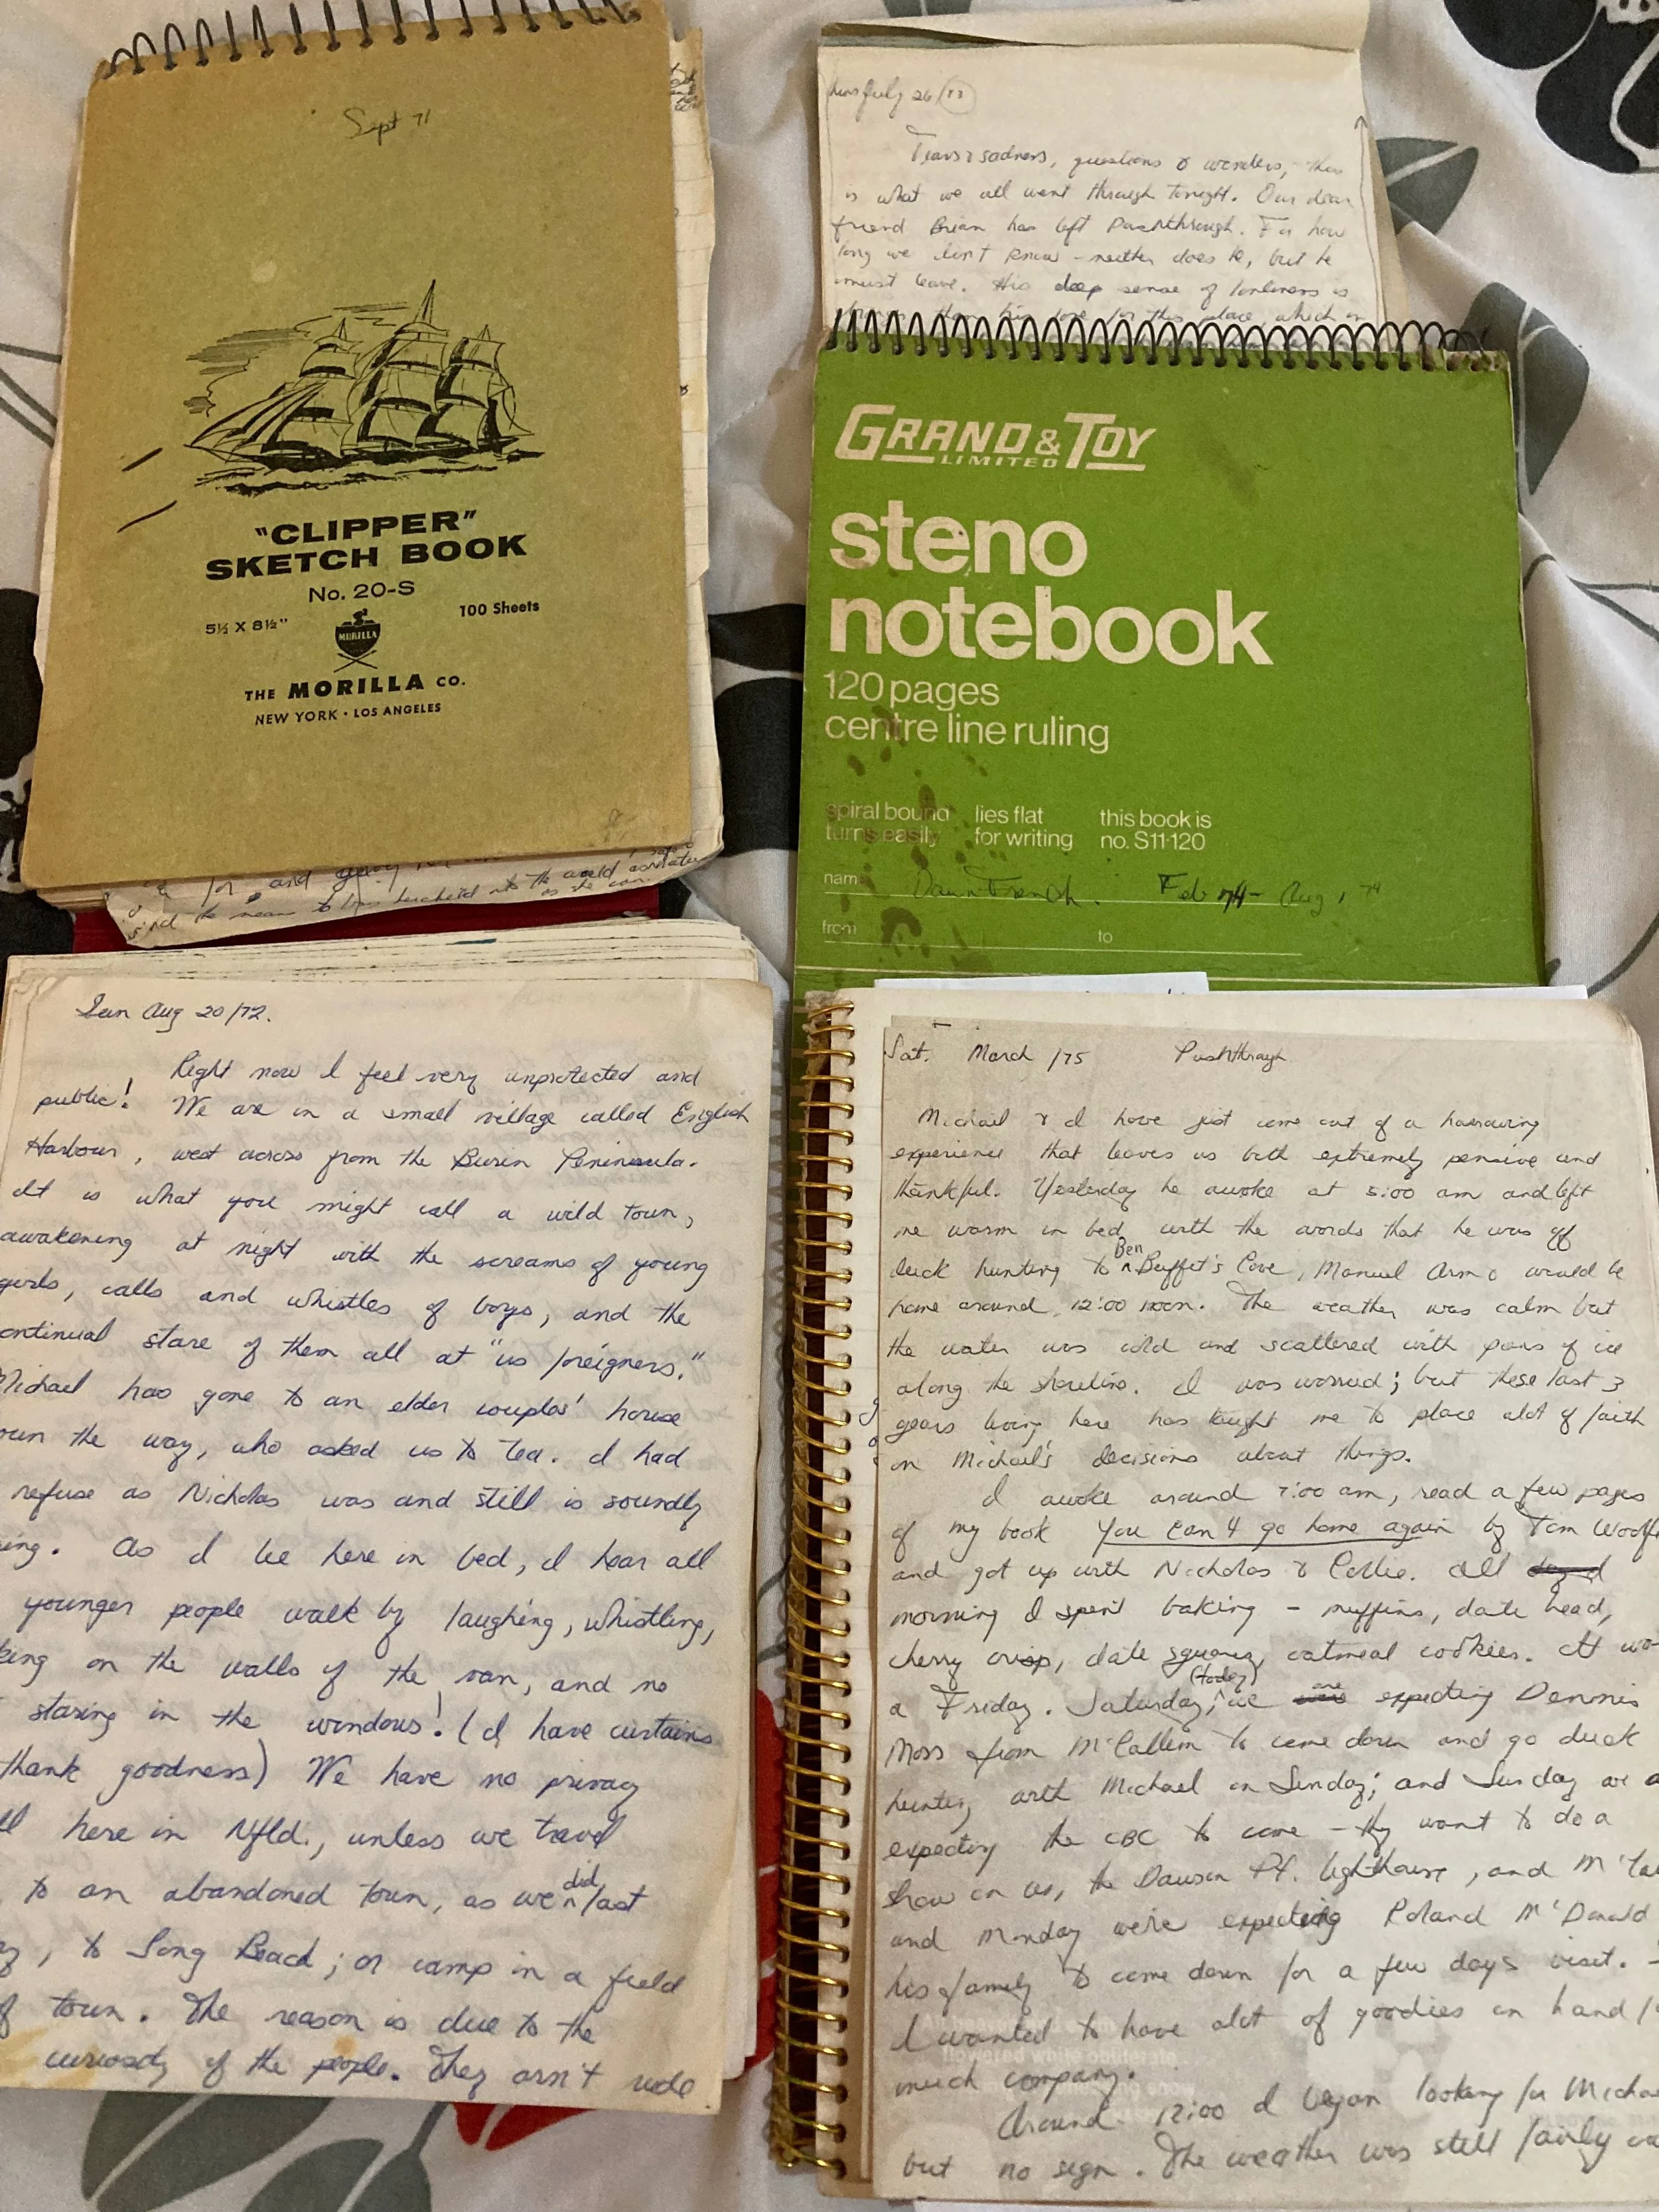 Sept 71
"CLIPPER"
SKETCH BOOK
No. 20-S
5½ X 8½"
100 Sheets
MORILLA
THE MORILLA CO.
NEW YORK · LOS ANGELES
for, and
the means to
July 26/
Tears & sadness, questions & wonders, this
is what we all went through tonight. Our dear
friend Brian has left Pushthrough. For how
long we don't know - neither does he, but he
must leave. His deep sense of lonliness is
than his love for this place, which
GRAND & TOY
LIMITED
steno
notebook
120 pages
centre line ruling
spiral bound
turns easily
lies flat
for writing
this book is
no. S11·120
name
Dawn French. Feb 74 - Aug, 74
from
to
Sun Aug 20/72.
Right now I feel very unprotected and
public! We are in a small village called English
Harbour, west across from the Burin Peninsula.
It is what you might call a wild town,
awakening at night with the screams of young
girls, calls and whistles of boys, and the
continual stare of them all at "us foreigners."
Michael has gone to an elder couples' house
the way, who asked us to tea. I had
refuse as Nicholas was and still is soundly
ing. As I lie here in bed, I hear all
younger people walk by laughing, whistling,
king on the walls of the van, and no
staring in the windows! (I have curtains
thank goodness) We have no privacy
here in Nfld., unless we travel
to an abandoned town, as we did last
, to Long Beach; or camp in a field
of town. The reason is due to the
curiosity of the people. They arn't rude
Sat. March /75 Pushthrough
Michael & I have just come out of a harrowing
experience that leaves us both extremely pensive and
thankful. Yesterday he awoke at 5:00 am and left
me warm in bed with the words that he was off
duck hunting to Ben Buffet's Cove, Manuel Arm & would be
home around 12:00 noon. The weather was calm but
the water was cold and scattered with pans of ice
along the shoreline. I was worried; but these last 3
years living here has taught me to place alot of faith
on Michael's decisions about things.
I awoke around 7:00 am, read a few pages
of my book You can't go home again by Tom Woolfe
and got up with Nicholas & Collie. All
morning I spent baking - muffins, date bead,
cherry crisp, date squares, oatmeal cookies. It wa
a Friday. Saturday, (today) we are expecting Dennis
Moss from McCallum to come down and go duck
hunting with Michael on Sunday; and Sunday we a
expecting the CBC to come - they want to do a
show on us, the Dawson Pt. lighthouse, and McCa
and Monday we're expecting Roland McDonald
his family to come down for a few days visit. -
I wanted to have alot of goodies on hand for
much company.
Around 12:00 I began looking for Michae
but no sign. The weather was still fairly ca